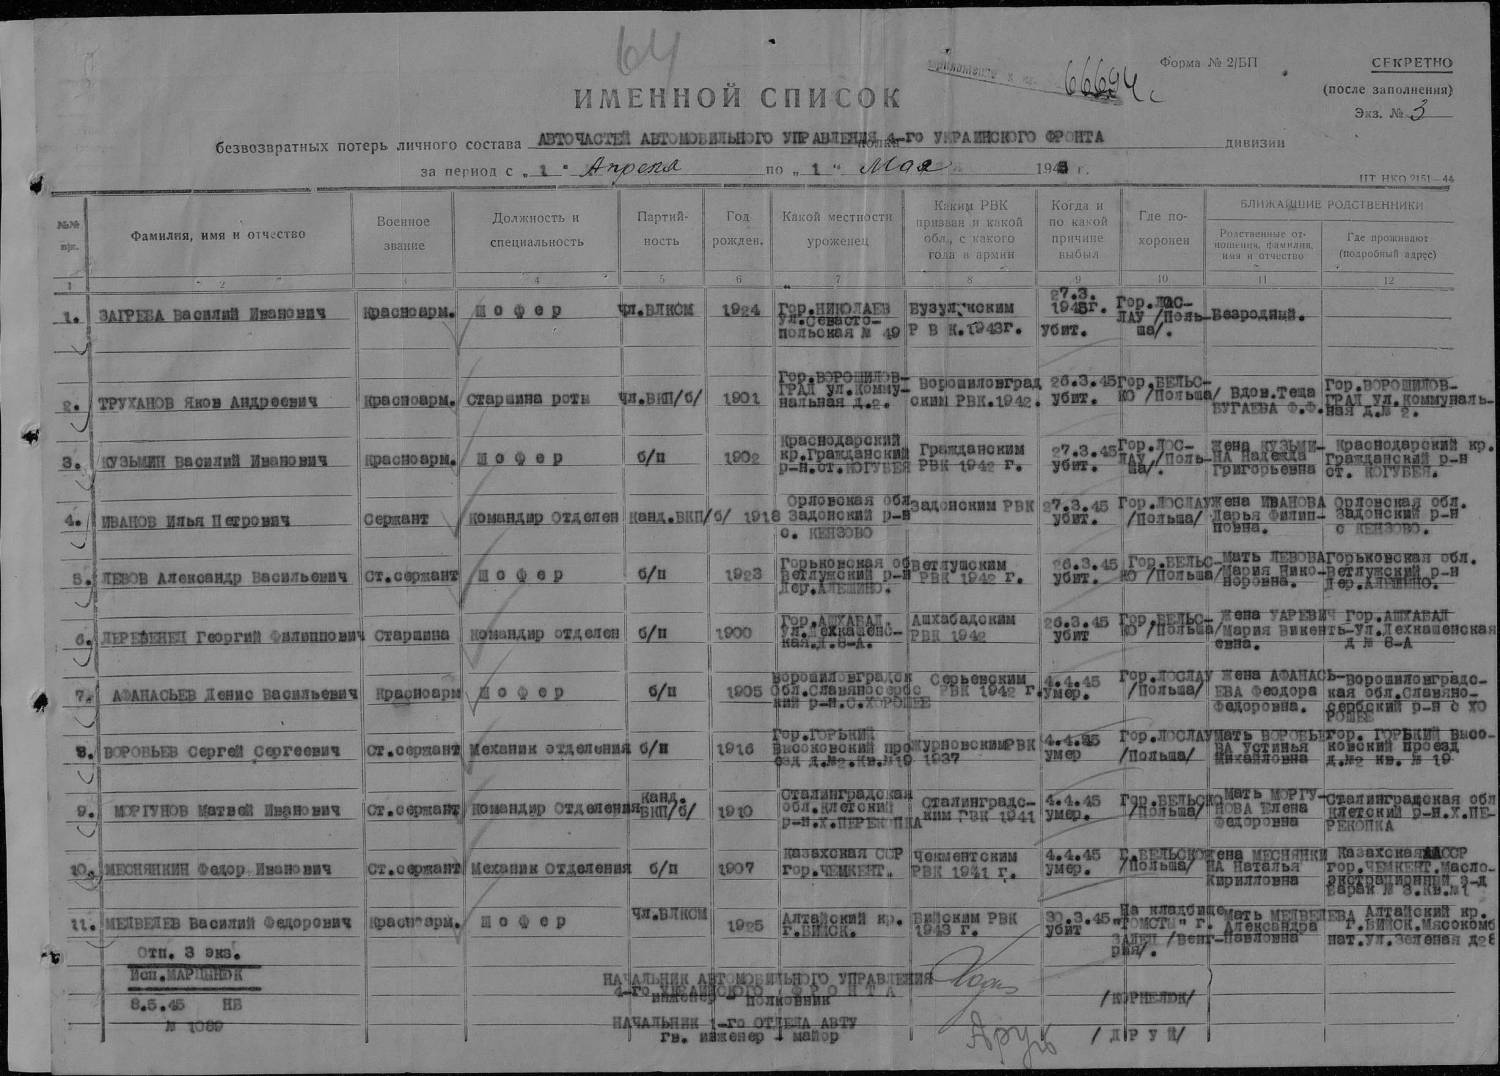 64
66694с
Форма № 2/БП
СЕКРЕТНО
(после заполнения)
Экз. № 3
ИМЕННОЙ СПИСОК
безвозвратных потерь личного состава АВТОЧАСТЕЙ АВТОМОБИЛЬНОГО УПРАВЛЕНИЯ 4-го УКРАИНСКОГО ФРОНТА дивизии
за период с „ 1 " Апреля по „ 1 " Мая 1945 г.
№№ Фамилия, имя и отчество Военное звание Должность и специальность Партийность Год рожден. Какой местности уроженец Каким РВК призван и какой обл., с какого года в армии Когда и по какой причине выбыл Где похоронен БЛИЖАЙШИЕ РОДСТВЕННИКИ
Родственные отношения, фамилия, имя и отчество Где проживают (подробный адрес)
1 2 3 4 5 6 7 8 9 10 11 12
1. ЗАГРЕБА Василий Иванович Красноарм. Шофер чл.ВЛКСМ 1924 Гор.НИКОЛАЕВ ул.Севастопольская № 49 РВК.1943г. 27.3.1945г. убит. Гор.ЛОСЛАУ /Польша/. Безродный.
2. ТРУХАНОВ Яков Андреевич Красноарм. Старшина роты чл.ВКП/б/ 1901 Гор.ВОРОШИЛОВГРАД ул.Коммунальная д.2. Ворошиловградским РВК.1942. 26.3.45 убит. Гор.БЕЛЬСКО /Польша/ Вдов.Теща БУГАЕВА Ф.Ф. Гор.ВОРОШИЛОВГРАД ул.Коммунальная д.№ 2.
3. КУЗЬМИН Василий Иванович Красноарм. Шофер б/п 1902 Краснодарский кр.Гражданский р-н.ст.КОГУБЕЯ Гражданским РВК 1942 г. 27.3.45 убит. Гор.ЛОСЛАУ /Польша/. Жена КУЗЬМИНА Надежда Григорьевна Краснодарский кр. Гражданский р-н ст. КОГУБЕЯ.
4. ИВАНОВ Илья Петрович Сержант Командир отделен канд.ВКП/б/ 1918 Орловская обл Задонский р-н с. КЕНЗОВО Задонским РВК 27.3.45 убит. Гор.ЛОСЛАУ /Польша/ Жена ИВАНОВА Дарья Филипповна. Орловская обл. Задонский р-н с КЕНЗОВО.
5. ЛЕВОВ Александр Васильевич Ст.сержант Шофер б/п 1923 Горьковская об Ветлужский р-н Дер.АЛЕШИНО. Ветлушским РВК 1942 г. 26.3.45 убит. Гор.БЕЛЬСКО /Польша/ Мать ЛЕВОВА Мария Никоноровна. Горьковская обл. Ветлужский р-н Дер.АЛЕШИНО.
6. ДЕРЕВЕНЕЦ Георгий Филиппович Старшина Командир отделен б/п 1900 Гор.АШХАБАД. ул.Дехкашенская.Д.8-А. Ашхабадским РВК 1942 26.3.45 убит Гор.БЕЛЬСКО /Польша/ Жена УАРЕВИЧ Мария Викентьевна. Гор.АШХАБАД ул.Дехкашенская д № 8-А
7. АФАНАСЬЕВ Денис Васильевич Красноарм Шофер б/п 1905 Ворошиловградск обл.Славяносербский р-н.С.ХОРОШЕЕ Серьевским РВК 1942 г. 4.4.45 умер. Гор.ЛОСЛАУ /Польша/ Жена АФАНАСЬЕВА Феодора Федоровна. Ворошиловградская обл.Славяносербский р-н с ХОРОШЕЕ
8. ВОРОБЬЕВ Сергей Сергеевич Ст.сержант Механик отделения б/п 1916 Гор.ГОРЬКИЙ Высоковский проезд д.№2.Кв.№19 РВК 1937 4.4.45 умер Гор.ЛОСЛАУ /Польша/ Мать ВОРОБЬЕВА Устинья Михайловна Гор. ГОРЬКИЙ Высоковский проезд д.№2 кв. № 19
9. МОРГУНОВ Матвей Иванович Ст.сержант Командир Отделения канд. ВКП/б/ 1910 Сталинградская обл.Клетский р-н.Х.ПЕРЕКОПКА Сталинградским РВК 1941 4.4.45 умер. Гор.БЕЛЬСКО /Польша/ Мать МОРГУНОВА Елена Федоровна Сталинградская обл Клетский р-н.Х.ПЕРЕКОПКА
10. МЕСНЯНКИН Федор Иванович Ст.сержант Механик Отделения б/п 1907 Казахская ССР гор.ЧЕМКЕНТ. Чекментским РВК 1941 г. 4.4.45 умер. Г.БЕЛЬСКО /Польша/ Жена МЕСНЯНКИНА Наталья Кирилловна Казахская ССР гор.ЧЕМКЕНТ.Маслоэкстрационный з-д Барак № 3.Кв.№1
11. МЕДВЕДЕВ Василий Федорович Красноарм. Шофер чл.ВЛКСМ 1925 Алтайский кр. г.БИЙСК. Бийским РВК 1943 г. 30.3.45 убит На кладбище г. /Венгрия/. Мать МЕДВЕДЕВА Александра Павловна Алтайский кр. г.БИЙСК.Мясокомбнат.ул.Зеленая д28
Отп. 3 экз.
Исп.МАРЦЫНЮК
8.5.45 НБ
№ 1089
НАЧАЛЬНИК АВТОМОБИЛЬНОГО УПРАВЛЕНИЯ
4-го УКРАИНСКОГО ФРОНТА
инженер - полковник /КОРНЕЛЮК/
НАЧАЛЬНИК 1-го ОТДЕЛА АВТУ
гв. инженер - майор /ДРУЙ/